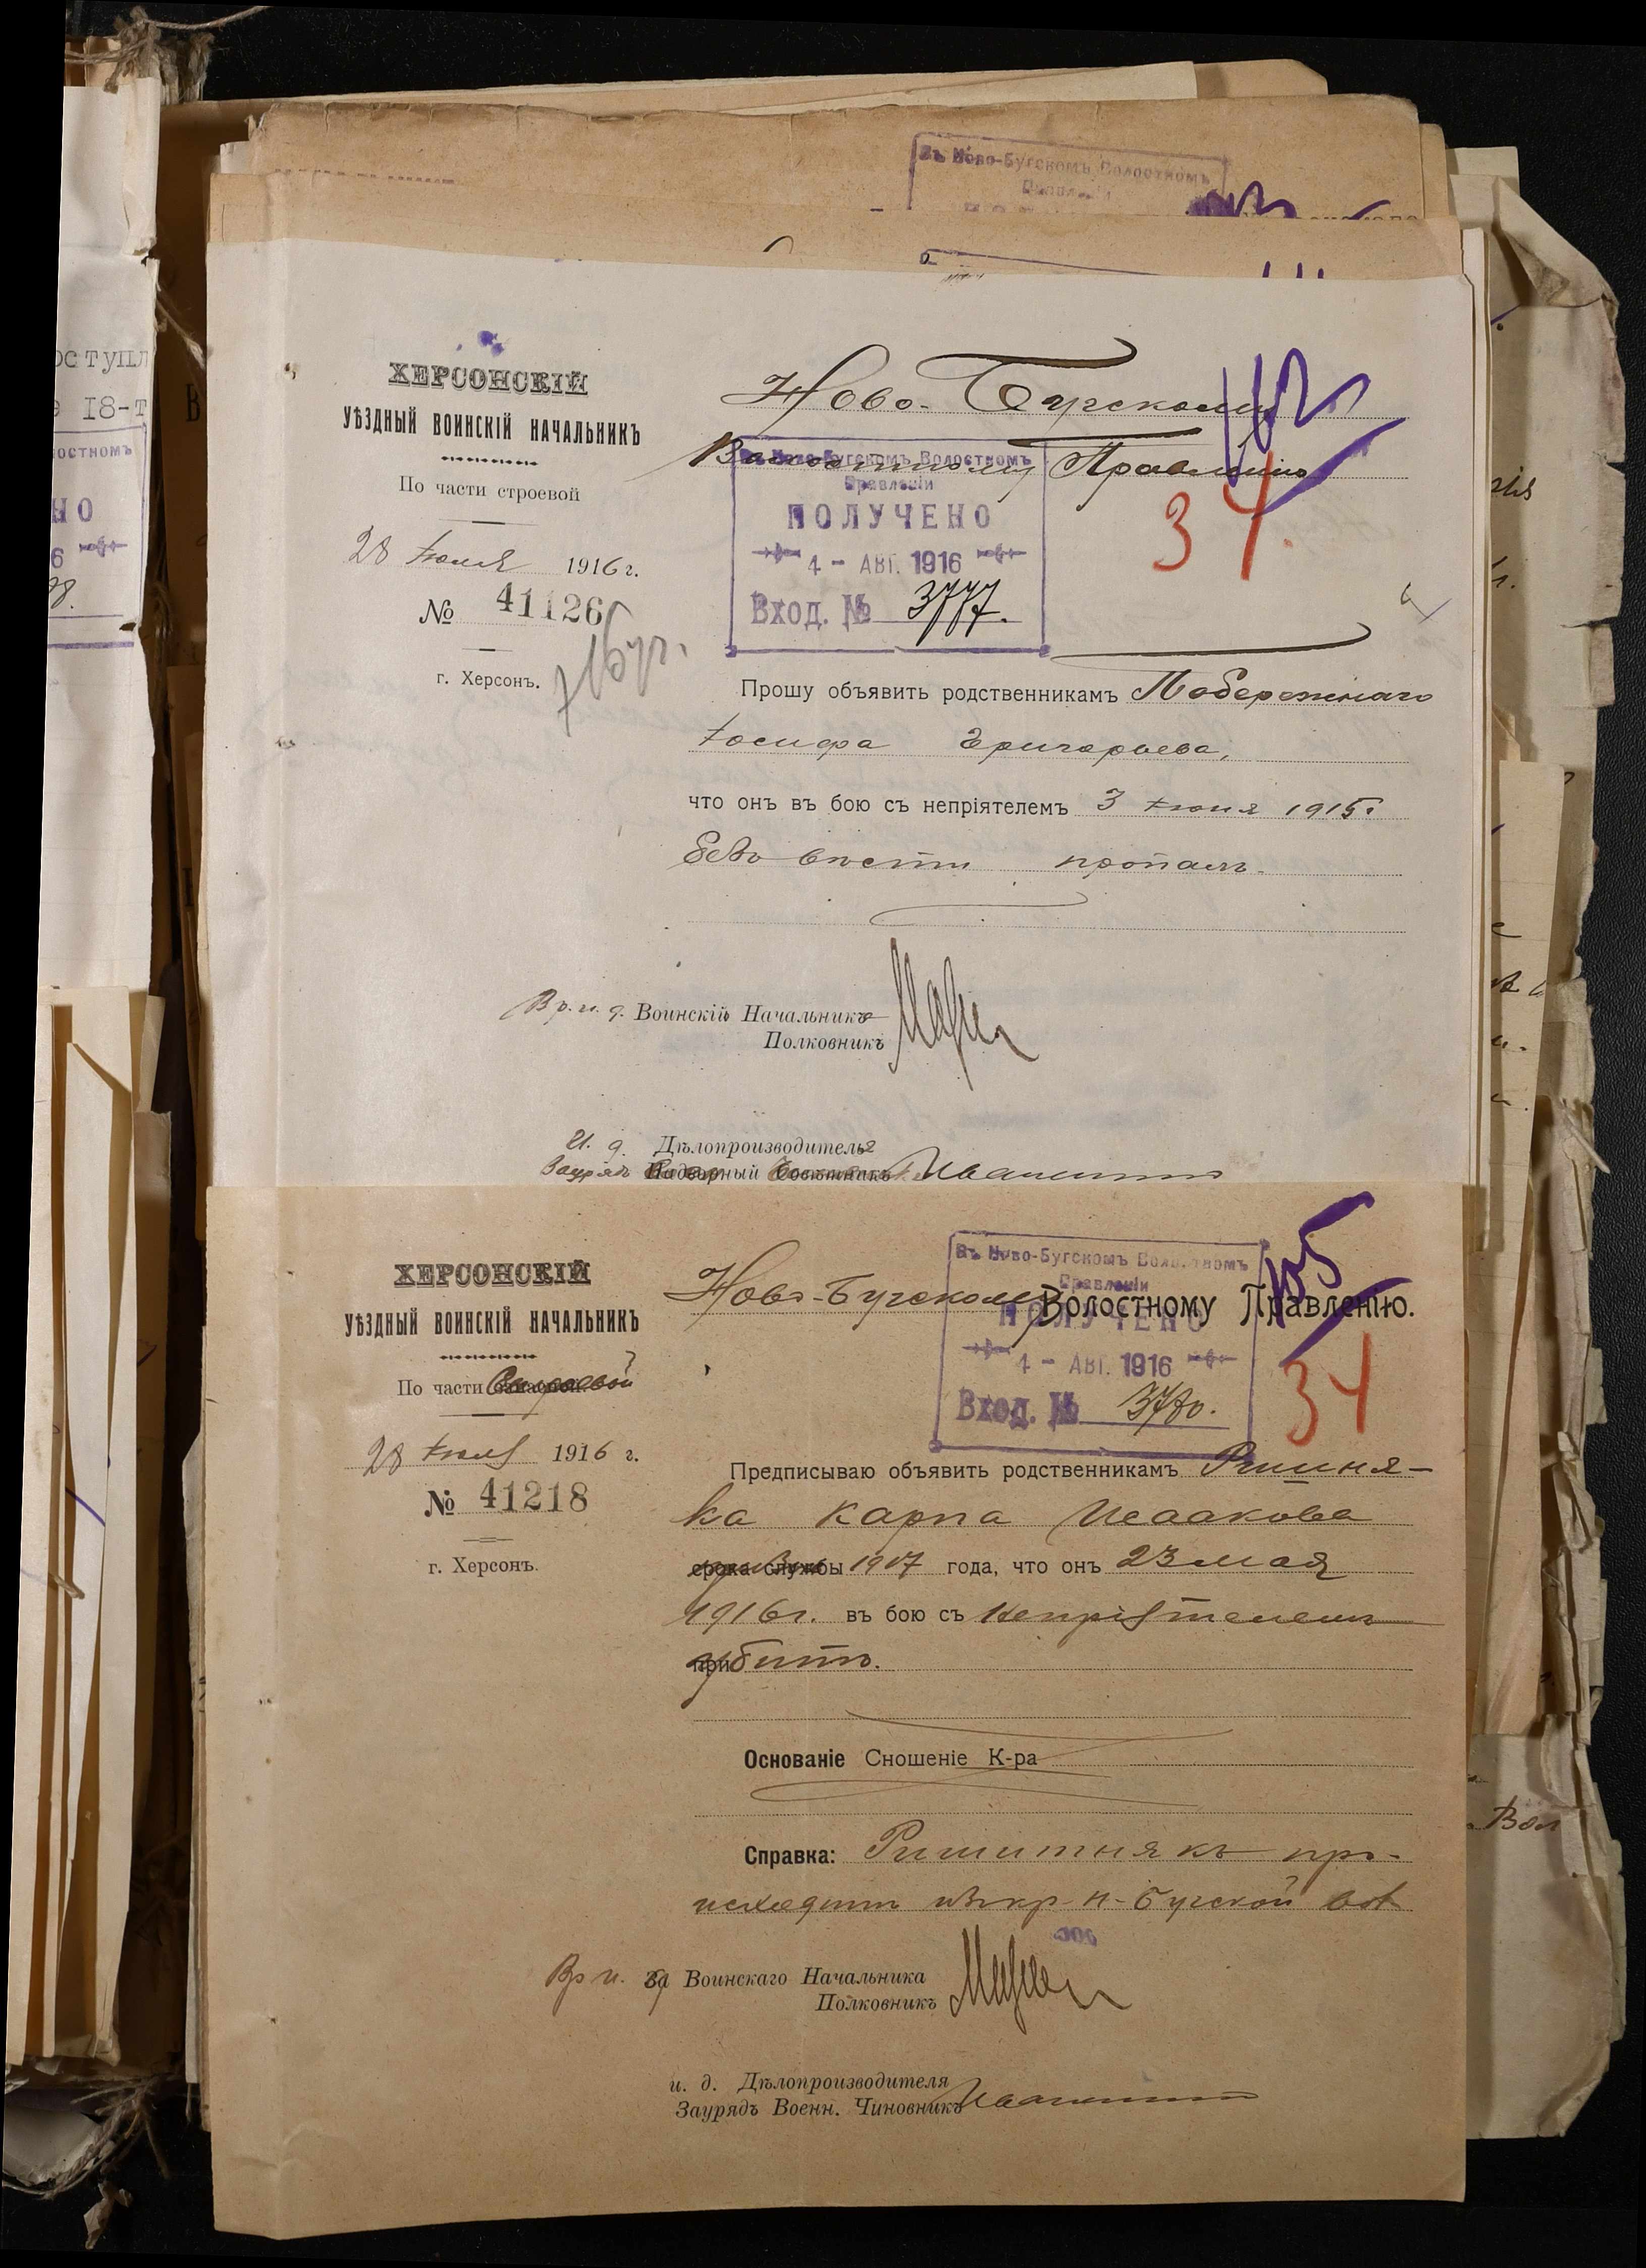 оступл
е 18-т
остномъ
но
6
Въ Ново-Бугскомъ Волостномъ
Правленіи
ХЕРСОНСКІЙ
УѢЗДНЫЙ ВОИНСКІЙ НАЧАЛЬНИКЪ
По части строевой
28 Іюля 1916 г.
№ 41126
г. Херсонъ.
Ново-Бугскому
Волостному Правленію
Въ Ново-Бугскомъ Волостномъ
Правленіи
ПОЛУЧЕНО
4 - АВГ. 1916
Вход. № 3777.
34.
Прошу объявить родственникамъ Побережнаго
Іосифа Григорьева,
что онъ въ бою съ непріятелемъ 3 Іюня 1915 г
безъ вѣсти пропалъ.
Вр. и. д. Воинскій Начальникъ
Полковникъ
И. д. Дѣлопроизводителя
Заурядъ
ХЕРСОНСКІЙ
УѢЗДНЫЙ ВОИНСКІЙ НАЧАЛЬНИКЪ
По части Строевой
28 Іюля 1916 г.
№ 41218
г. Херсонъ.
Ново-Бугскому Волостному Правленію.
Въ Ново-Бугскомъ Волостномъ
Правленіи
ПОЛУЧЕНО
4 - АВГ. 1916
Вход. № 3780.
105
34
Предписываю объявить родственникамъ
ка Карпа Исаакова
срока службы 1907 года, что онъ 23 мая
1916 г. въ бою съ непріятелемъ
убитъ.
Основаніе Сношеніе К-ра
Справка: Ришитнякъ про-
исходитъ изъ кр Н-Бугской вол
Вр и. д Воинскаго Начальника
Полковникъ
и. д. Дѣлопроизводителя
Заурядъ Военн. Чиновникъ
Вол